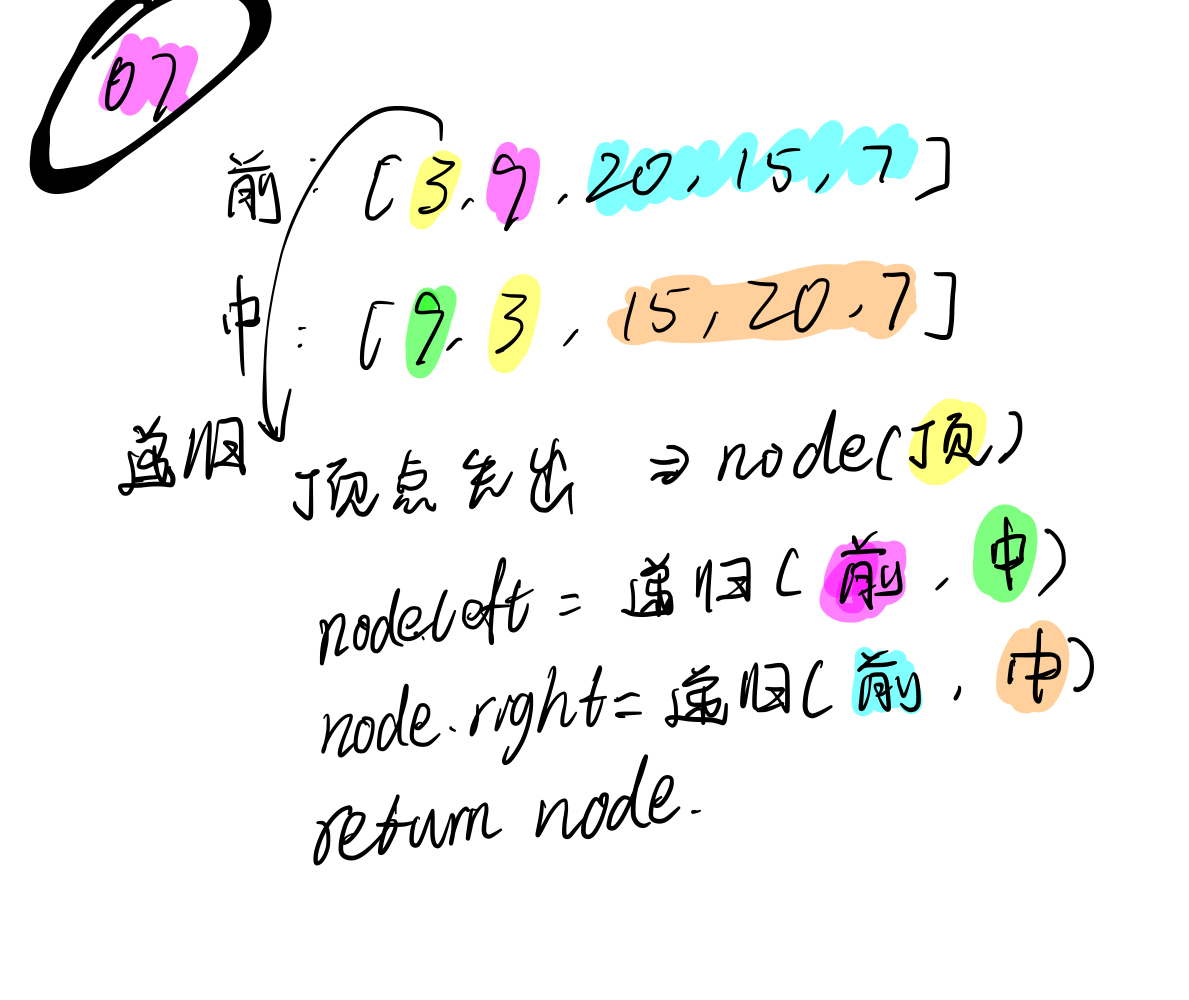 07
前: [3, 9, 20, 15, 7]
中: [9, 3, 15, 20, 7]
递归
顶点先出 ⇒ node(顶)
node.left = 递归(前, 中)
node.right = 递归(前, 中)
return node.